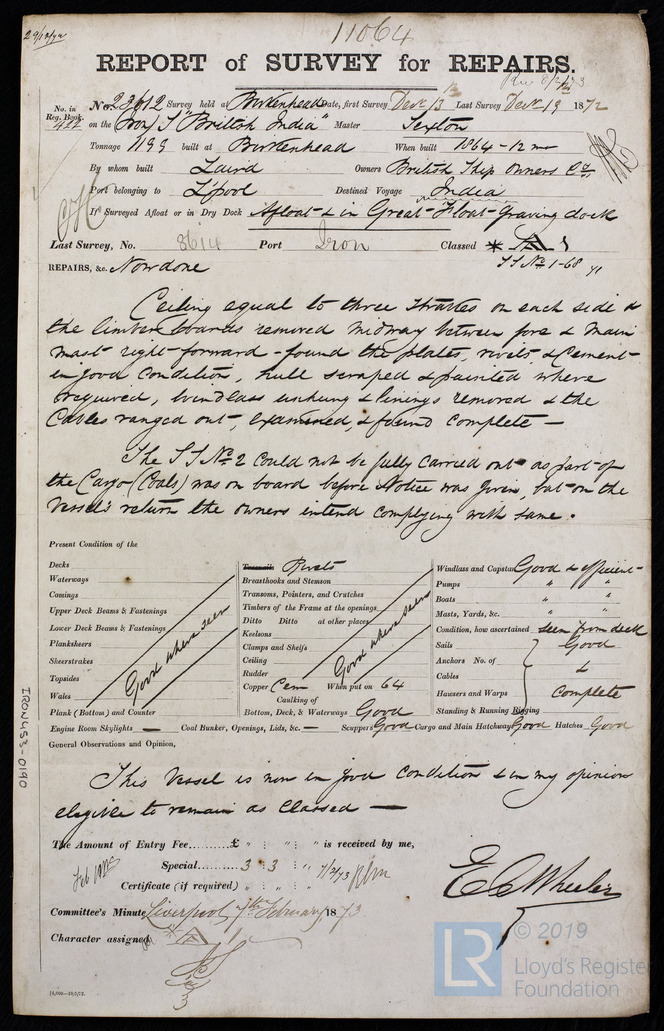 29/12/72
11064
REPORT of SURVEY for REPAIRS.
No. in Reg. Book. 422
No. 23612 Survey held at Birkenhead Date, first Survey Decr 13 Last Survey Decr 19 1872
on the Iron S "British India" Master Sexton
Tonnage 1199 built at Birkenhead When built 1864 - 12 mo
By whom built Laird Owners British Ship Owners Co.
Port belonging to L'pool Destined Voyage India
If Surveyed Afloat or in Dry Dock Afloat & in Great Float Graving dock
Last Survey, No. 8614 Port Iron Classed
SS No 1-68
REPAIRS, &c. Now done
Ceiling equal to three strakes on each side &
the limber boards removed midway between fore & main
mast right forward - found the plates, rivets & cement
in good condition, hull scraped & painted where
required, windlass unhung & linings removed & the
Cables ranged out, examined, & found complete -
The SS No 2 could not be fully carried out as part of
the Cargo (Coals) was on board before Notice was given, but on the
Vessel's return the owners intend complying with same.
Present Condition of the
Decks
Waterways
Comings
Upper Deck Beams & Fastenings
Lower Deck Beams & Fastenings
Planksheers
Sheerstrakes
Topsides
Wales
Plank (Bottom) and Counter
Good where seen
Treenails Rivets
Breasthooks and Stemson
Transoms, Pointers, and Crutches
Timbers of the Frame at the openings
Ditto Ditto at other places
Keelsons
Clamps and Shelfs
Ceiling
Rudder
Good where seen
Copper Cem When put on 64
Caulking of
Bottom, Deck, & Waterways Good
Windlass and Capstan Good & efficient
Pumps " "
Boats " "
Masts, Yards, &c. " "
Condition, how ascertained seen from deck
Sails Good
Anchors No. of &
Cables
Hawsers and Warps complete
Standing & Running Rigging
Engine Room Skylights — Coal Bunker, Openings, Lids, &c. — Scuppers Good Cargo and Main Hatchways Good Hatches Good
General Observations and Opinion,
This Vessel is now in good condition & in my opinion
eligible to remain as classed —
The Amount of Entry Fee......£ " : " : " is received by me,
Special........ 3 : 3 : " 7/2/73
Certificate (if required) " : " : "
Committee's Minute Liverpool 7th February 1873
Character assigned
E C Wheeler
[4,000—10/5/72.
IRON453-0190
LR
© 2019
Lloyd's Register
Foundation